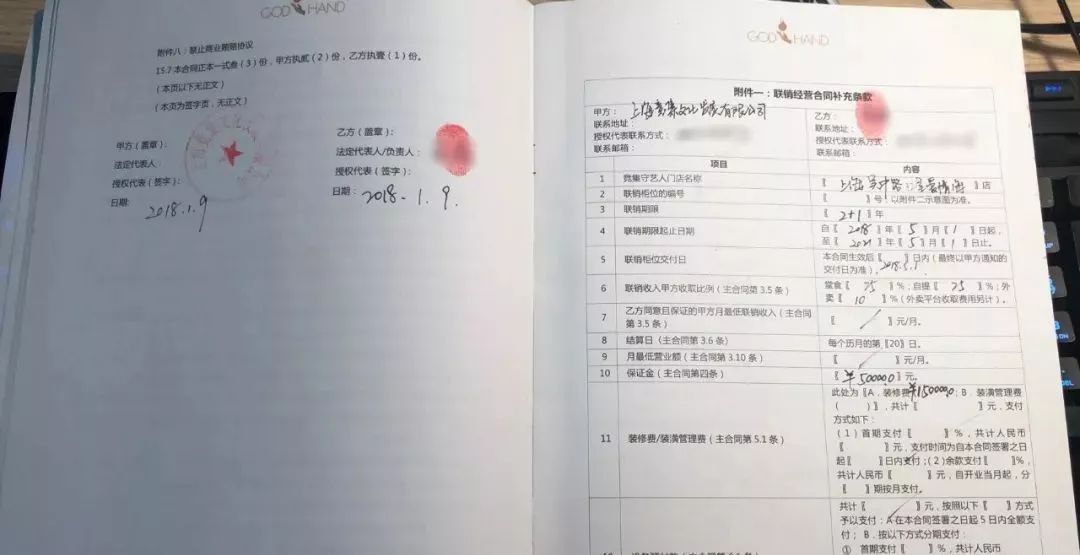 GOD HAND
附件八：禁止商业贿赂协议
15.7 本合同正本一式叁（3）份，甲方执贰（2）份，乙方执壹（1）份。
（本页以下无正文）
（本页为签字页，无正文）
甲方（盖章）：
法定代表人：
授权代表（签字）：
日期:
2018.1.9
乙方（盖章）：
法定代表人/负责人：
授权代表（签字）：
日期：2018.1.9.
GOD HAND
附件一：联销经营合同补充条款
甲方：上海竞集文化发展有限公司
联系地址：
授权代表联系方式：
联系邮箱：
乙方：
联系地址：
授权代表联系方式：
联系邮箱：
项目 内容
1 竞集守艺人门店名称 〖上海 〗店
2 联销柜位的编号 〖 〗号！以附件二示意图为准。
3 联销期限 〖2+1〗年
4 联销期限起止日期 自〖2018〗年〖5〗月〖1〗日起，
至〖2021〗年〖5〗月〖1〗日止。
5 联销柜位交付日 本合同生效后〖 〗日内（最终以甲方通知的
交付日为准）。2018.5.1
6 联销收入甲方收取比例（主合同第 3.5 条） 堂食〖25〗%；自提〖25〗%；外
卖〖10〗%（外卖平台收取费用另计）。
7 乙方同意且保证的甲方月最低联销收入（主合同
第 3.5 条） 〖 〗元/月。
8 结算日（主合同第 3.6 条） 每个历月的第〖20〗日。
9 月最低营业额（主合同第 3.10 条） 〖 〗元/月。
10 保证金（主合同第四条） 〖¥50000〗元。
11 装修费/装潢管理费（主合同第 5.1 条） 此处为〖A．装修费¥150000；B．装潢管理费
（ ）〗，共计〖 〗元，支付
方式如下：
（1）首期支付〖 〗%，共计人民币
〖 〗元，支付时间为自本合同签署之日
起〖 〗日内支付；（2）余款支付〖 〗%，
共计人民币〖 〗元，自开业当月起，分
〖 〗期按月支付。
共计〖 〗元，按照以下〖 〗方式
予以支付：A 在本合同签署之日起 5 日内全额支
付； B．按以下方式分期支付：
① 首期支付〖 〗%，共计人民币